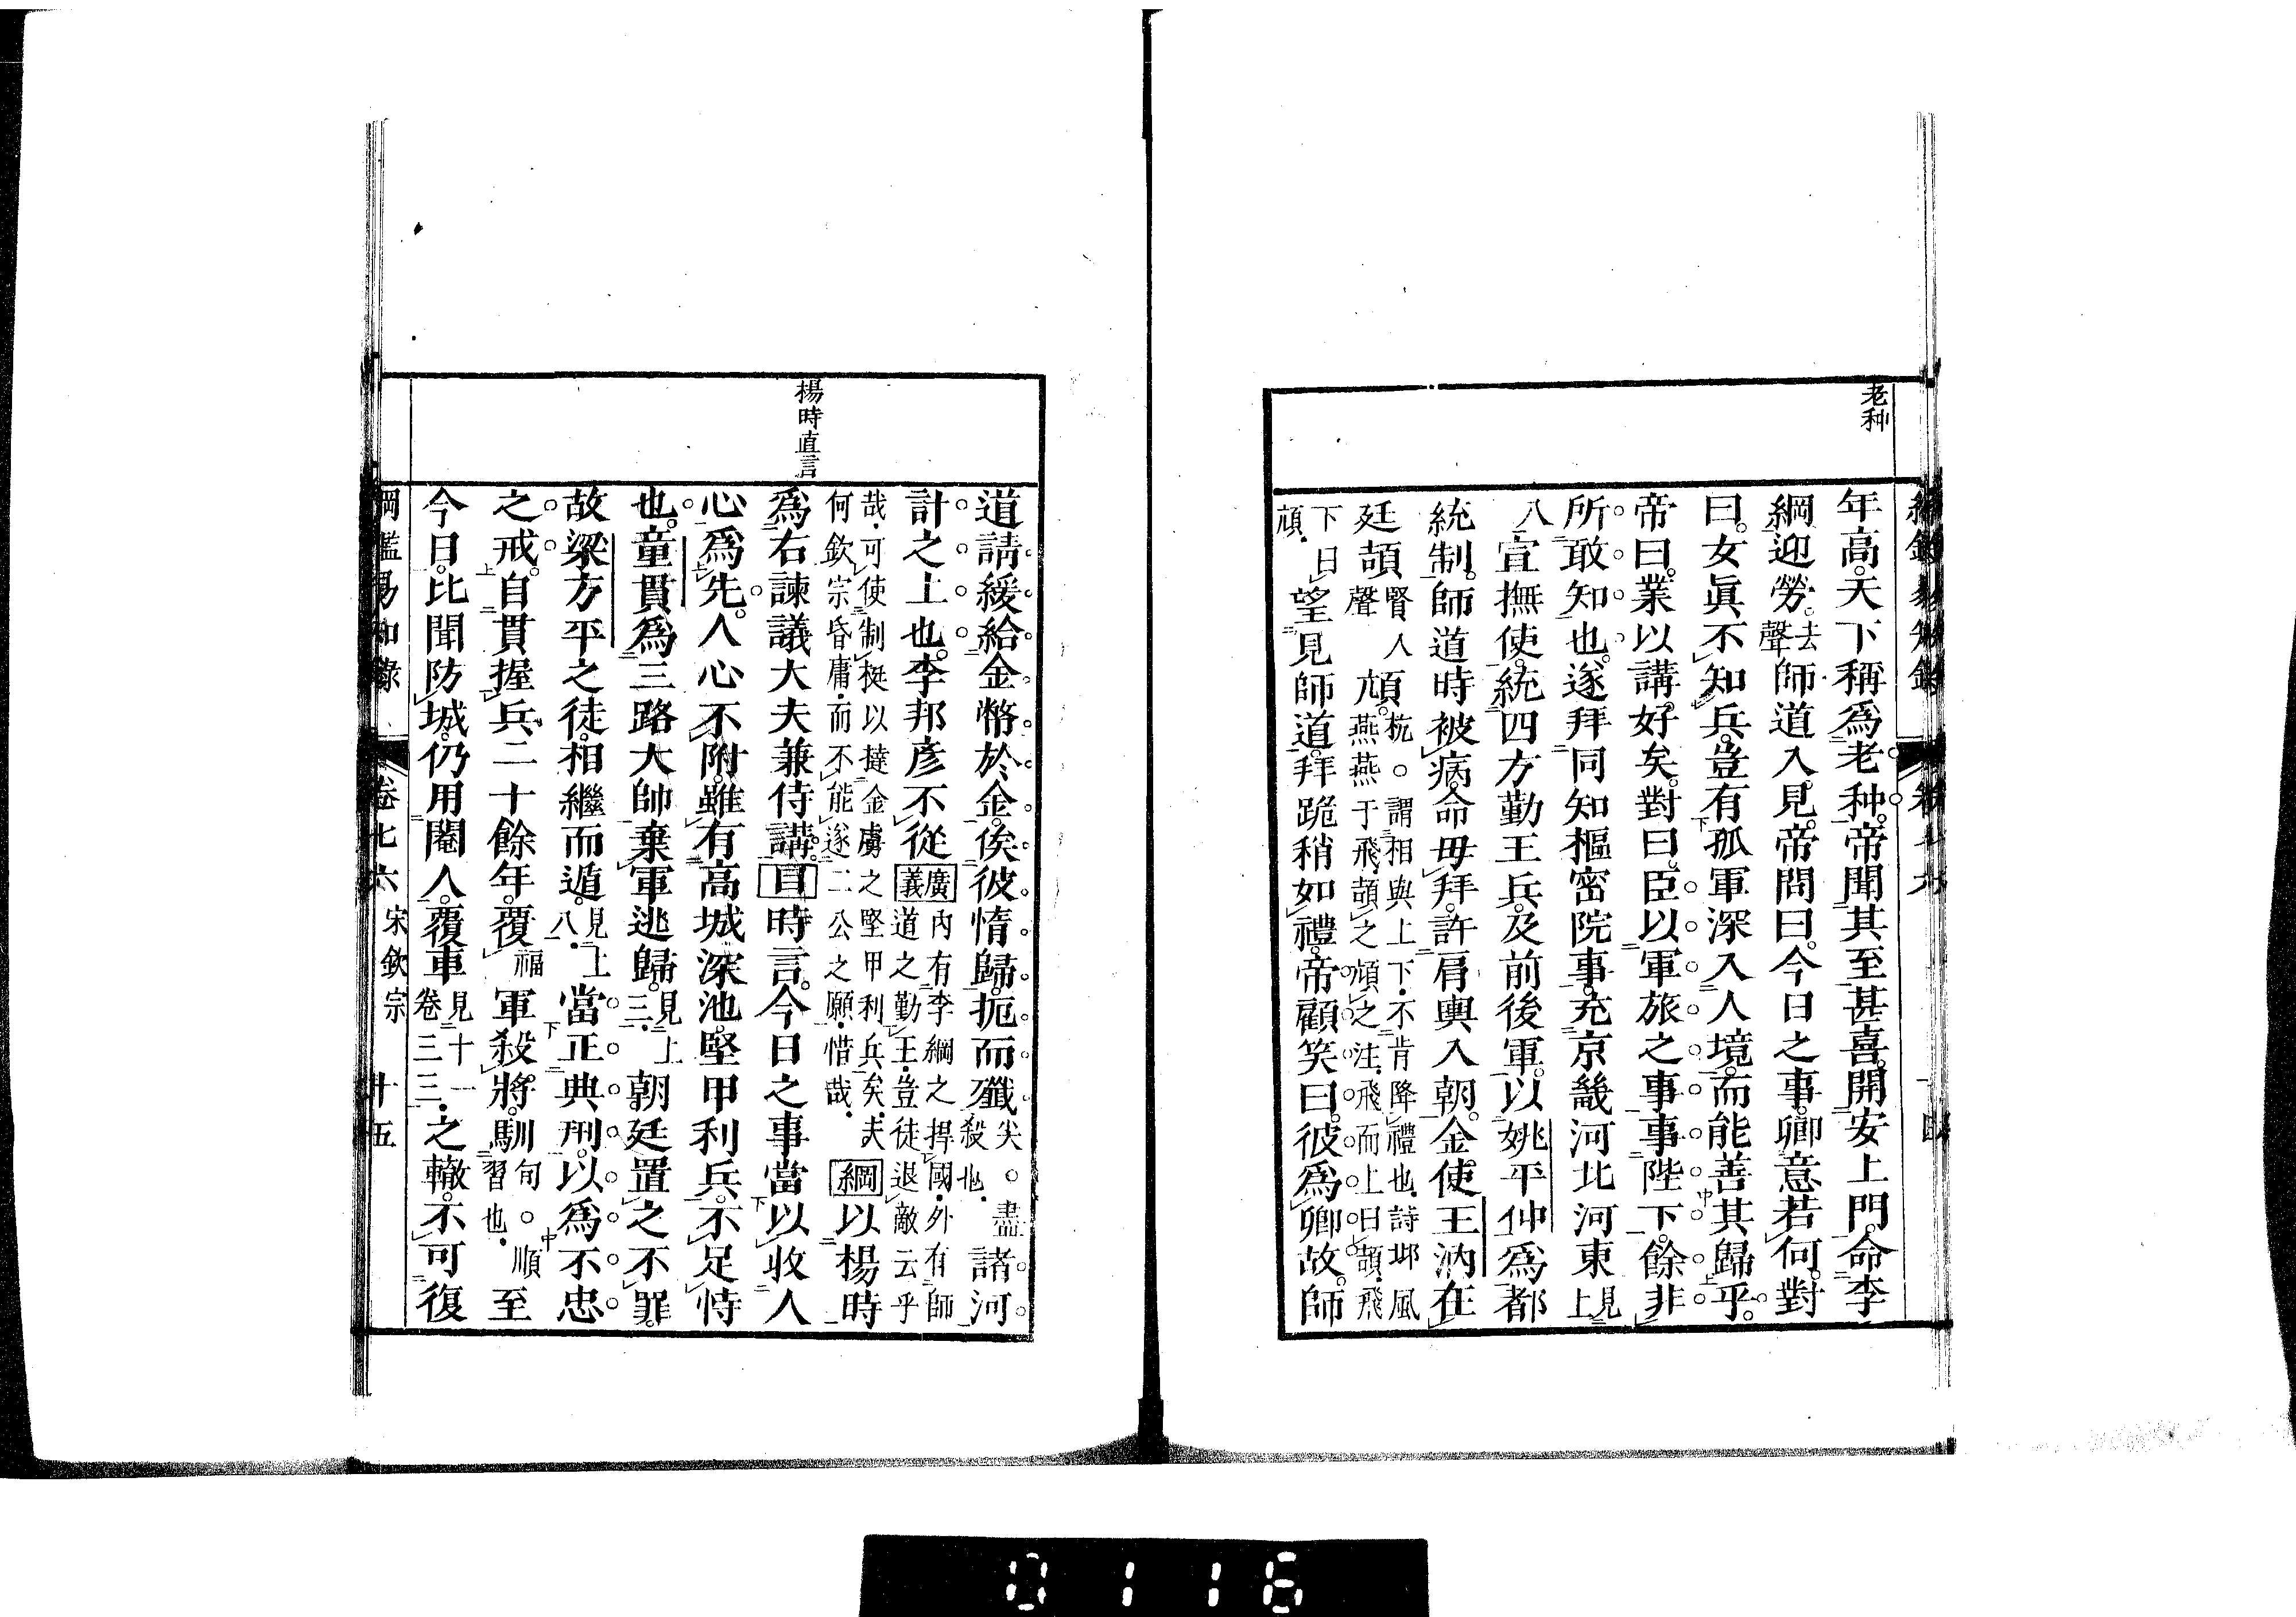 老种
年高。天下稱爲老种。帝聞其至甚喜。開安上門。命李
綱迎勞。去聲師道入見。帝問曰。今日之事。卿意若何。對
曰。女眞不知兵。豈有孤軍深入人境。而能善其歸乎。
帝曰。業以講好矣。對曰。臣以軍旅之事事陛下。餘非
所敢知也。遂拜同知樞密院事。充京畿河北河東見上
八宣撫使。統四方勤王兵。及前後軍。以姚平仲爲都
統制。師道時被病。命毋拜。許肩輿入朝。金使王汭在
廷頡賢入聲頏。杭。謂相與上下。不肯降禮也。詩邶風燕燕于飛。頡之頏之注。飛而上曰頡。飛
下曰頏。望見師道。拜跪稍如禮。帝顧笑曰。彼爲卿故。師
道請緩給金幣於金。俟彼惰歸。扼而殲尖。盡殺也。諸河
計之上也。李邦彦不從廣義內有李綱之捍國。外有師道之勤王。豈徒退敵云乎
哉。可使制梃以撻金虜之堅甲利兵矣。夫何欽宗昏庸。而不能遂二公之願。惜哉。綱以楊時
爲右諫議大夫兼侍講。目時言。今日之事當以收人
心爲先。人心不附。雖有高城深池。堅甲利兵。不足恃
也。童貫爲三路大帥。棄軍逃歸。見上三。朝廷置之不罪。
故梁方平之徒。相繼而遁。見上八。當正典刑。以爲不忠
之戒。自貫握兵二十餘年。覆福軍殺將。馴旬。順習也。至
今日。比聞防城。仍用閹人。覆車見十一卷三三。之轍。不可復
楊時直言
綱鑑易知錄
卷七六
宋欽宗
十五